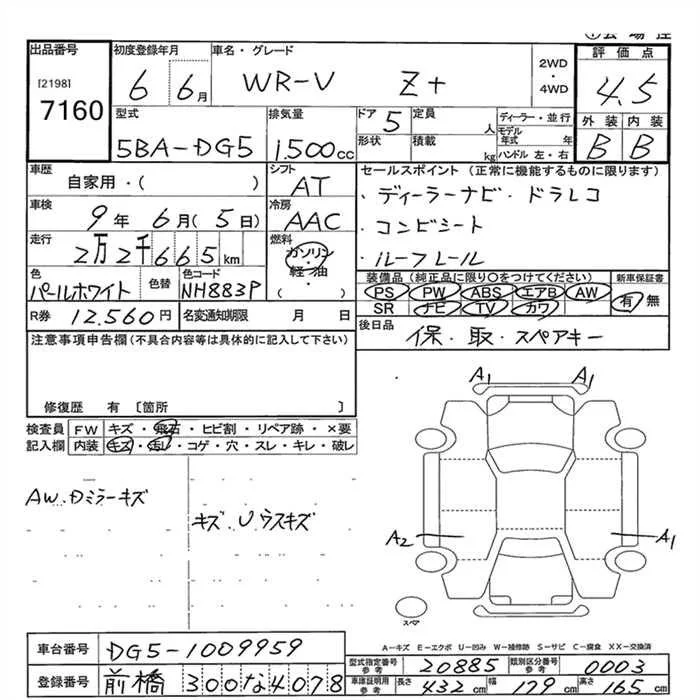 出品番号
[2198]
7160
初度登録年月
6 6月
車名・グレード
WR-V Z+
2WD
・
4WD
評価点
4.5
外装 内装
B B
型式
5BA-DG5
排気量
1.500cc
ドア 5
定員 人
形状
積載 kg
ディーラー・並行
モデル年式 年
ハンドル 左・右
車歴
自家用・( )
シフト
AT
車検
9年 6月 (5日)
冷房
AAC
走行
2万2千665km
燃料
ガソリン
・
軽油
( )
色
パールホワイト
色替
色コード
NH883P
R券 12.560円
名変通知期限 月 日
セールスポイント (正常に機能するものに限ります)
・ディーラーナビ・ドラレコ
・コンビシート
・ルーフレール
装備品 (純正品に限り○をつけてください)
PS PW ABS エアB AW
SR ナビ TV カワ
新車保証書
有 無
後日品
保・取・スペアキー
注意事項申告欄(不具合内容等は具体的に記入して下さい)
修復歴 有 [箇所 ]
検査員記入欄
FW キズ・飛石・ヒビ割・リペア跡・×要
内装 キズ・汚レ・コゲ・穴・スレ・キレ・破レ
AW.Dミラーキズ
キズ、Uウスキズ
A1 A1
A2 A1
スペア
A-キズ E-エクボ U-凹み W-補修跡 S-サビ C-腐食 XX-交換済
車台番号 DG5-1009959
登録番号 前橋 300な4078
型式指定番号 参考 20885
類別区分番号 参考 0003
車庫証明用 参考 長さ 432cm 幅 179cm 高さ 165cm